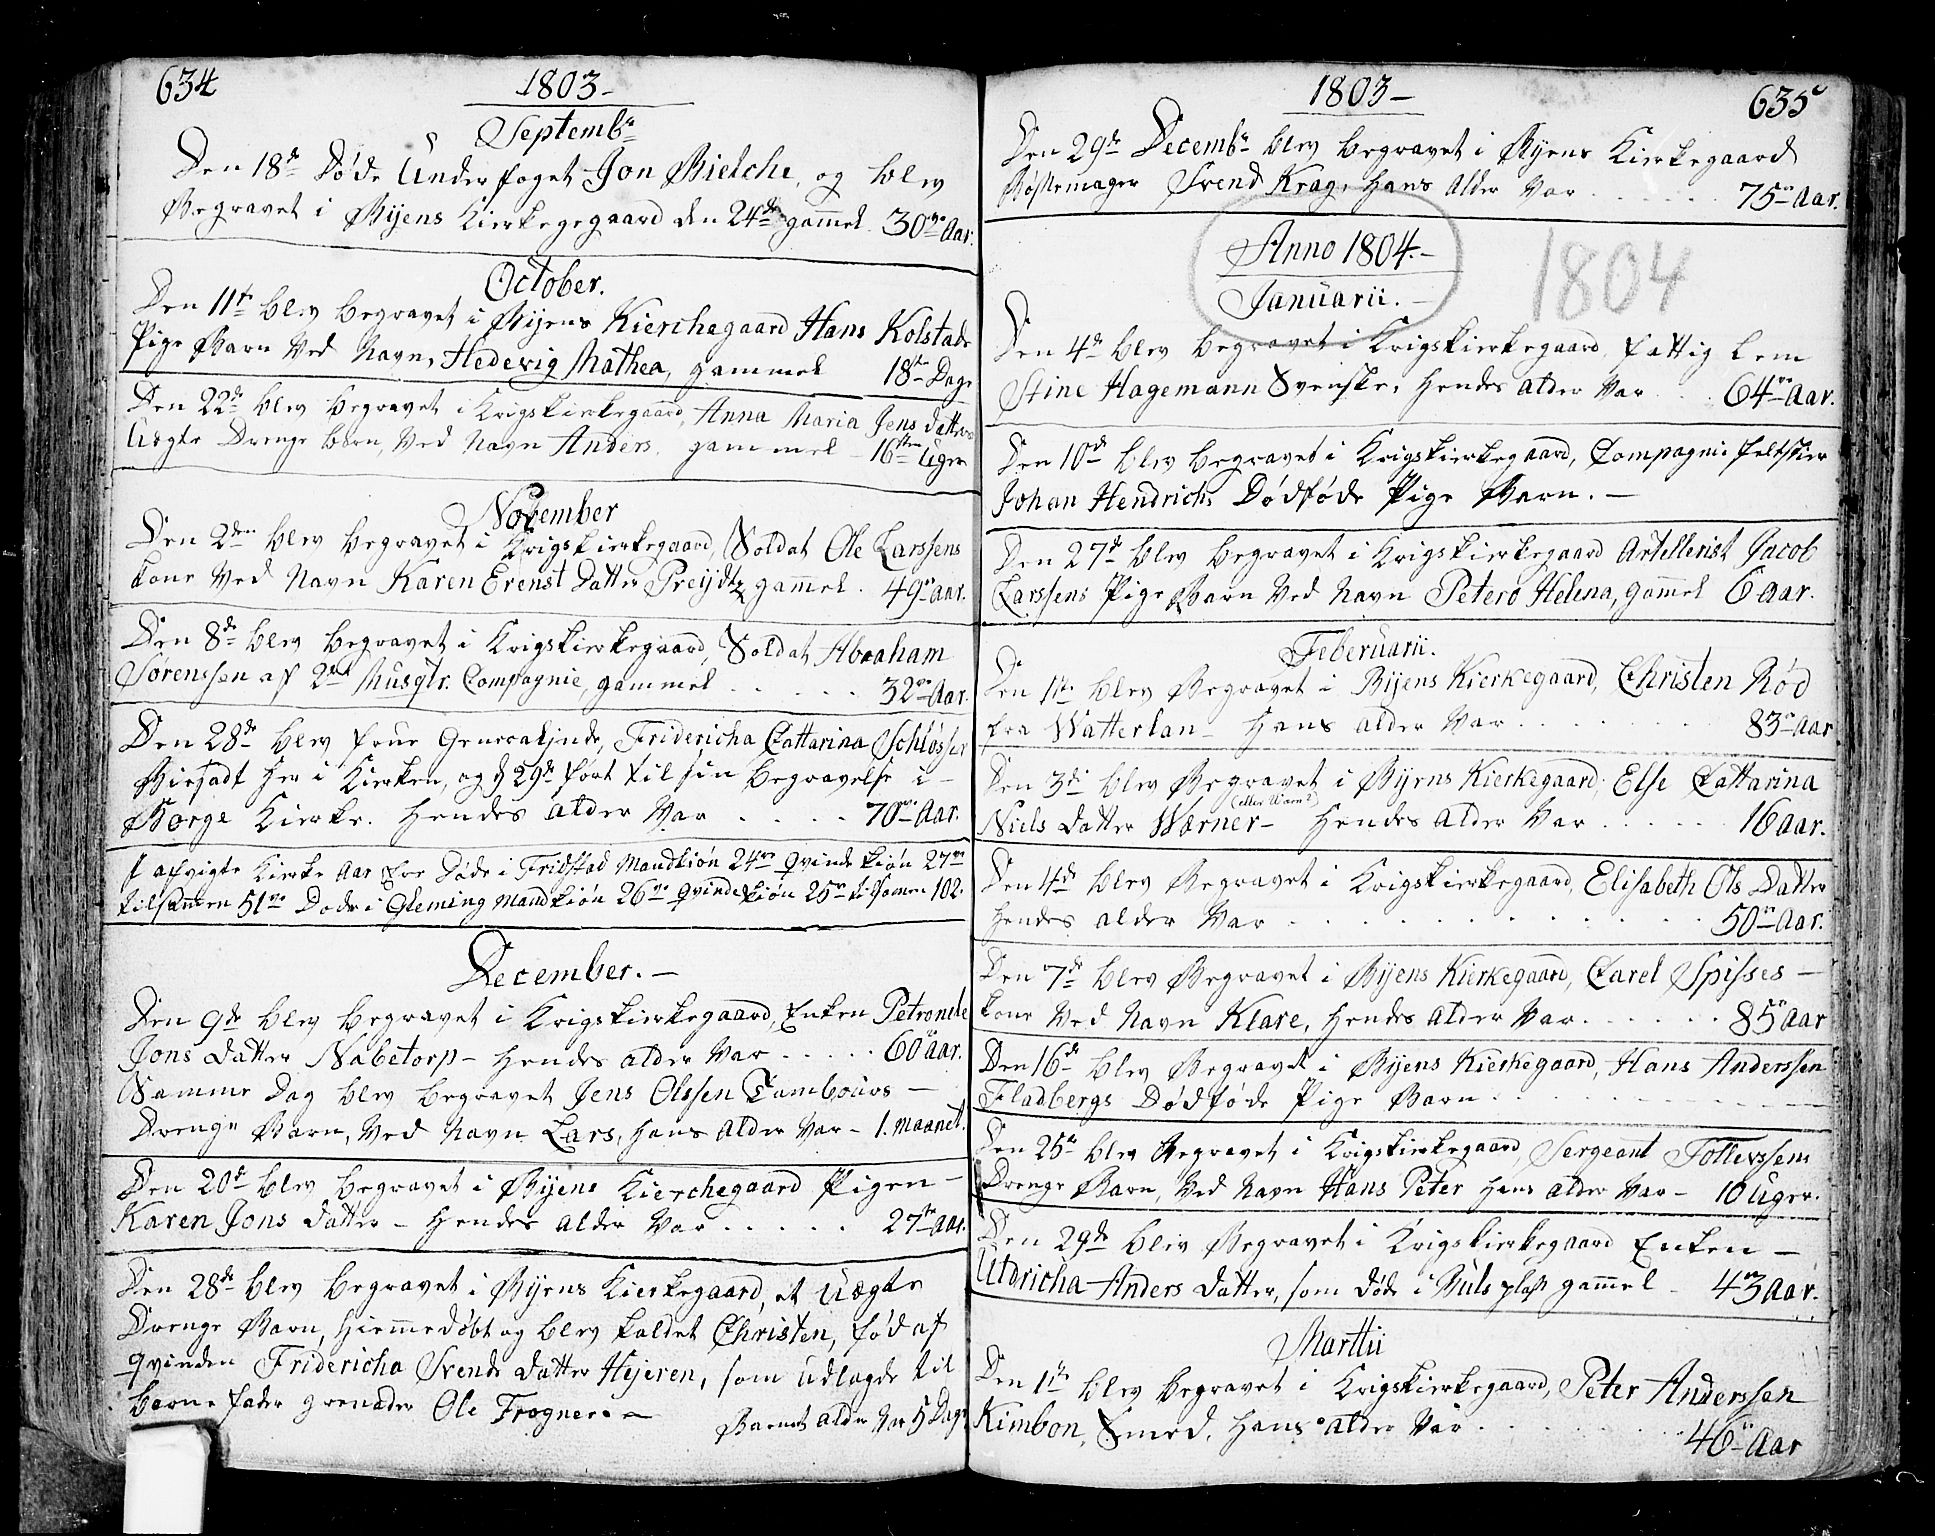 634
1803 -
Septembr
Den 18de Døde Underfoget Jon Bielche, og blev
Begravet i Byens Kierkegegaard den 24de gammel 30ve Aar.
October.
Den 11te blev begravet i Byens Kierchegaard Hans Kolstads
Pige Barn Ved Navn, Hedevig Mathea, gammel 18ten Dage
Den 22de blev begravet i Krigskierkegaard, Anna Maria Jens datters
Uægte Drenge barn, Ved Navn Anders, gammel - 16ten Uger
November
Den 2den blev begravet i Krigskierkegaard, Soldat Ole Larssens
kone Ved Navn Karen Erenst Datter Preydtz gammel. 49ve Aar.
Den 8de blev begravet i Krigskierkegaard, Soldat Abraham
Sørenssen af 2det Musqtr. Compagnie, gammel ..... 32ve Aar.
Den 28de blev frue Generalinde, Fridericha Cattarina Schløsser
Biesadt her i Kierken, og d 29de ført til sin begravelse i -
Borge Kierke. Hendes alder Var ..... 70ve Aar.
I afvigte Kierke Aar Ere Døde i Fridstad Mandkiøn 24ve Qvindekiøn 27ve
tilsammen 51ve Døde i Gleming Mandkiøn 26ve Qvindekiøn 25ve tilsamen 102.
December. -
Den 9de blev begravet i Krigskierkegaard, Enken Petronele
Jons datter Nabetorp - hendes alder Var ..... 60ve Aar.
Samme Dag blev begravet Jens Olssen Tambours -
Drenge Barn, Ved Navn Lars, hans alder Var - 1. Maanet.
Den 20de blev begravet i Byens Kierchegaard Pigen -
Karen Jons datter - hendes alder Var ..... 27ve Aar.
Den 28de blev begravet i Byens Kierkegaard, et Uægte
Drenge Barn, hiemmedøbt og blev kaldet Christen, fød af
qvinden Fridericha Svends datter Hejeren, som udlagde til
barne fader grenader Ole Frogner. -
Barnets alder Var 5 Dage
1803 -
635
Den 29de Decembr blev begravet i Byens Kierkegaard
Bøssemager Svend Krag, hans alder Var ...... 75ve Aar.
Anno 1804. -
1804
Januarii. -
Den 4de blev begravet i Krigskierkegaard, fattig Lem
Stine Hagemann Svenske, hendes alder Var ... 64ve Aar.
Den 10de blev begravet i Krigskierkegaard, Compagnie feltskier
Johan Hendrichs Dødføde Pige Barn. -
Den 27de blev begravet i Krigskierkegaard Artellerist Jacob
Larssens Pige Barn Ved Navn Petero Helena, gammel 6 Aar.
Feberuarii.
Den 1ste blev Begravet i Byens Kierkegaard, Christen Rød
fra Watterlan - hans alder Var ....... 83ve Aar
Den 3die blev Begravet i Byens Kierkegaard, Else Cattarina
(eller Varn?)
Niels datter Wærner - hendes alder Var ..... 16 aar.
Den 4de blev Begravet i Krigskierkegaard, Elisabeth Ols Datter
hendes alder Var ........... 50ve Aar.
Den 7de blev Begravet i Byens Kierkegaard, Carel Spisses -
kone Ved Navn Klare, hendes alder Var ...... 85ve Aar
Den 16de blev Begravet i Byens Kierkegaard, Hans Anderssen
Fladbergs Dødføde Pige Barn .........
Den 25de blev Begravet i Krigskierkegaard, Sergeant Tollevssens
Drenge Barn, Ved Navn Hans Peter hans alder Var - 10 Uger.
Den 29de blev Begravet i Krigskierkegaard Enken -
Uldricha Anders datter, som døde i plass gammel - 43ve Aar.
Marttii
Den 1ste blev begravet i Krigskierkegaard, Peter Anderssen
Kimbon, Smed, hans alder Var ........ 46ve Aar